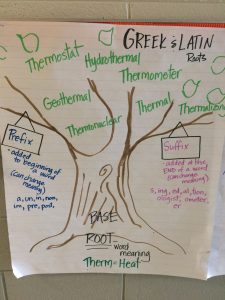 GREEK & LATIN
Roots
Thermostat
Hydrothermal
Thermometer
Geothermal
Thermal
Thermonuclear
Prefix
- added to
beginning of
a word
(can change
meaning)
a, un, in, non,
im, pre, pod,
Suffix
- added at the
END of a word
(can change
meaning)
s, ing, ed, al, tion,
ologist,
er
BASE
ROOT word
meaning
Therm = Heat